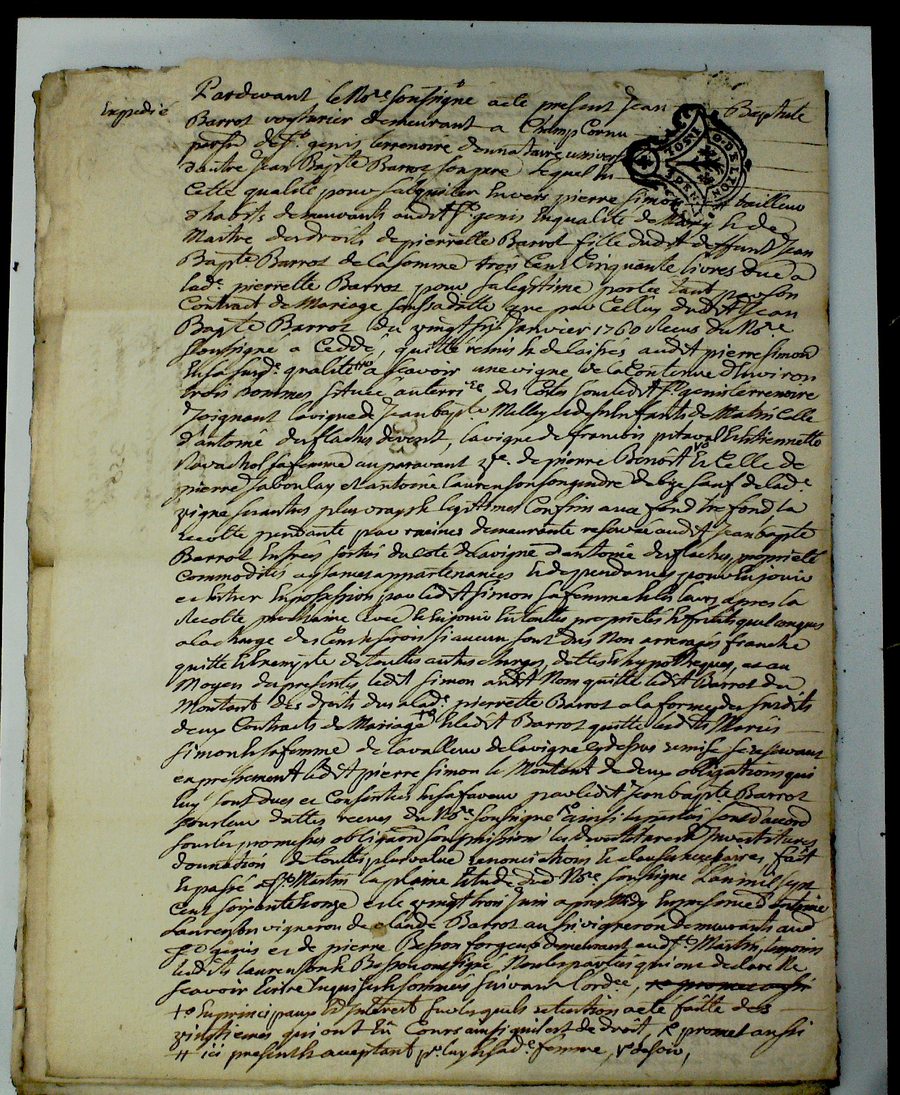 Expedié
Pardevant le No.re soussigné a eté present Jean Baptiste
Barrot voyturier demeurant a Champ Cornu
par.sse de S.t genis terrenoire donnataire univer
d'autre Jean Bapt.e Barrot son pere lequel en
Cette qualité pour s'alquiter Envers pierre simon # tailleur
d'habits demeurants audit S.t genis En qualité de Mary & de
Maitre des droits de pierrette Barrot fille dudit deffunt Jean
Bapt.e Barrot de la somme trois Cent Cinquante livres due a
lad.e pierrette Barrot pour sa legitime portée tant par son
Contrat de Mariage susdatté que par Celluy dudit Jean
Bapt.e Barrot du vingt six Janvier 1760 Recus du No.re
soussigné a Ceddé, quitté remis & delaissés audit pierre simon
En sa susd.e qualité scavoir une vigne de la Contenue d'Environ
trois hommes situéé au terri.re des Cotes sousledit S.t genis terrenoire
Joignant la vigne de Jean bapt.e Melley & des Enfants de Celle
d'antoine desflaches devent, la vigne de francois pitaval & Etiennette
Ravachol sa femme auparavant v.e de pierre Benoit Et Celle de
pierre Jaboulay et antoine laurenson son gendre de bize sauf de lad.e
vigne ses autres plus vrays & legitimes Confins aux fond tres fond la
recolte pendante par racines demeurante reservée audit Jean bapte
Barrot Entrées sorties du coté de la vigne d'antoine desflaches, proprieté
Commodités aysances appartenances & dependances, pour En jouir
et Entrer En possession par ledit simon sa femme & les leurs apres la
Recolte prochaine levée & En jouir En touttes proprietés & fruits quelconques
a la charge des Cens & servis si aucun sont dus Non arreragés franche
quitte & Exempte de touttes autres charges, dettes & hypotheques, et au
Moyen des presentes ledit simon audit Nom quitte ledit Barrot du
Montant des droits dus a lad.e pierrette Barrot a la forme des susdits
deux Contrats de Mariage & ledit Barrot quitte lesdits Mariés
simon & sa femme de la valleur de la vigne Cy dessus remise se reservant
expressement ledit pierre simon le Montant de deux obligations qui
luy sont dues et Consenties En sa faveur par ledit Jean bapt.e Barrot
sous leur dattes recues du No.re soussigné ainsi les parties sont d'accord
sous les promesses obligaon soumissions
donnation de touttes plus value renonciations & clauses necessaires, fait
& passé a S.t Martin la plaine Etude dud No.re soussigné l'an mil sept
Cent soixante & onze et le vingt trois Juin apres midy En presence d'antoine
Laurenson vigneron de Claude Barrot aussi vigneron demeurants aud
S.t genis et de pierre Besson forgeur demeurant aud S.t Martin, temoins
lesdits laurenson & Besson ont signé, Non les parties qui ont declaré Ne
scavoir Ecrire Enquises & sommées suivant l'ord.ce,
+o En principaux & Interest sur lesquels retention a eté faitte des
vingtiemes qui ont Eu Cours ainsi qui est de droit, & promet aussi
# ici present & acceptant p.r luy & sad.e femme,